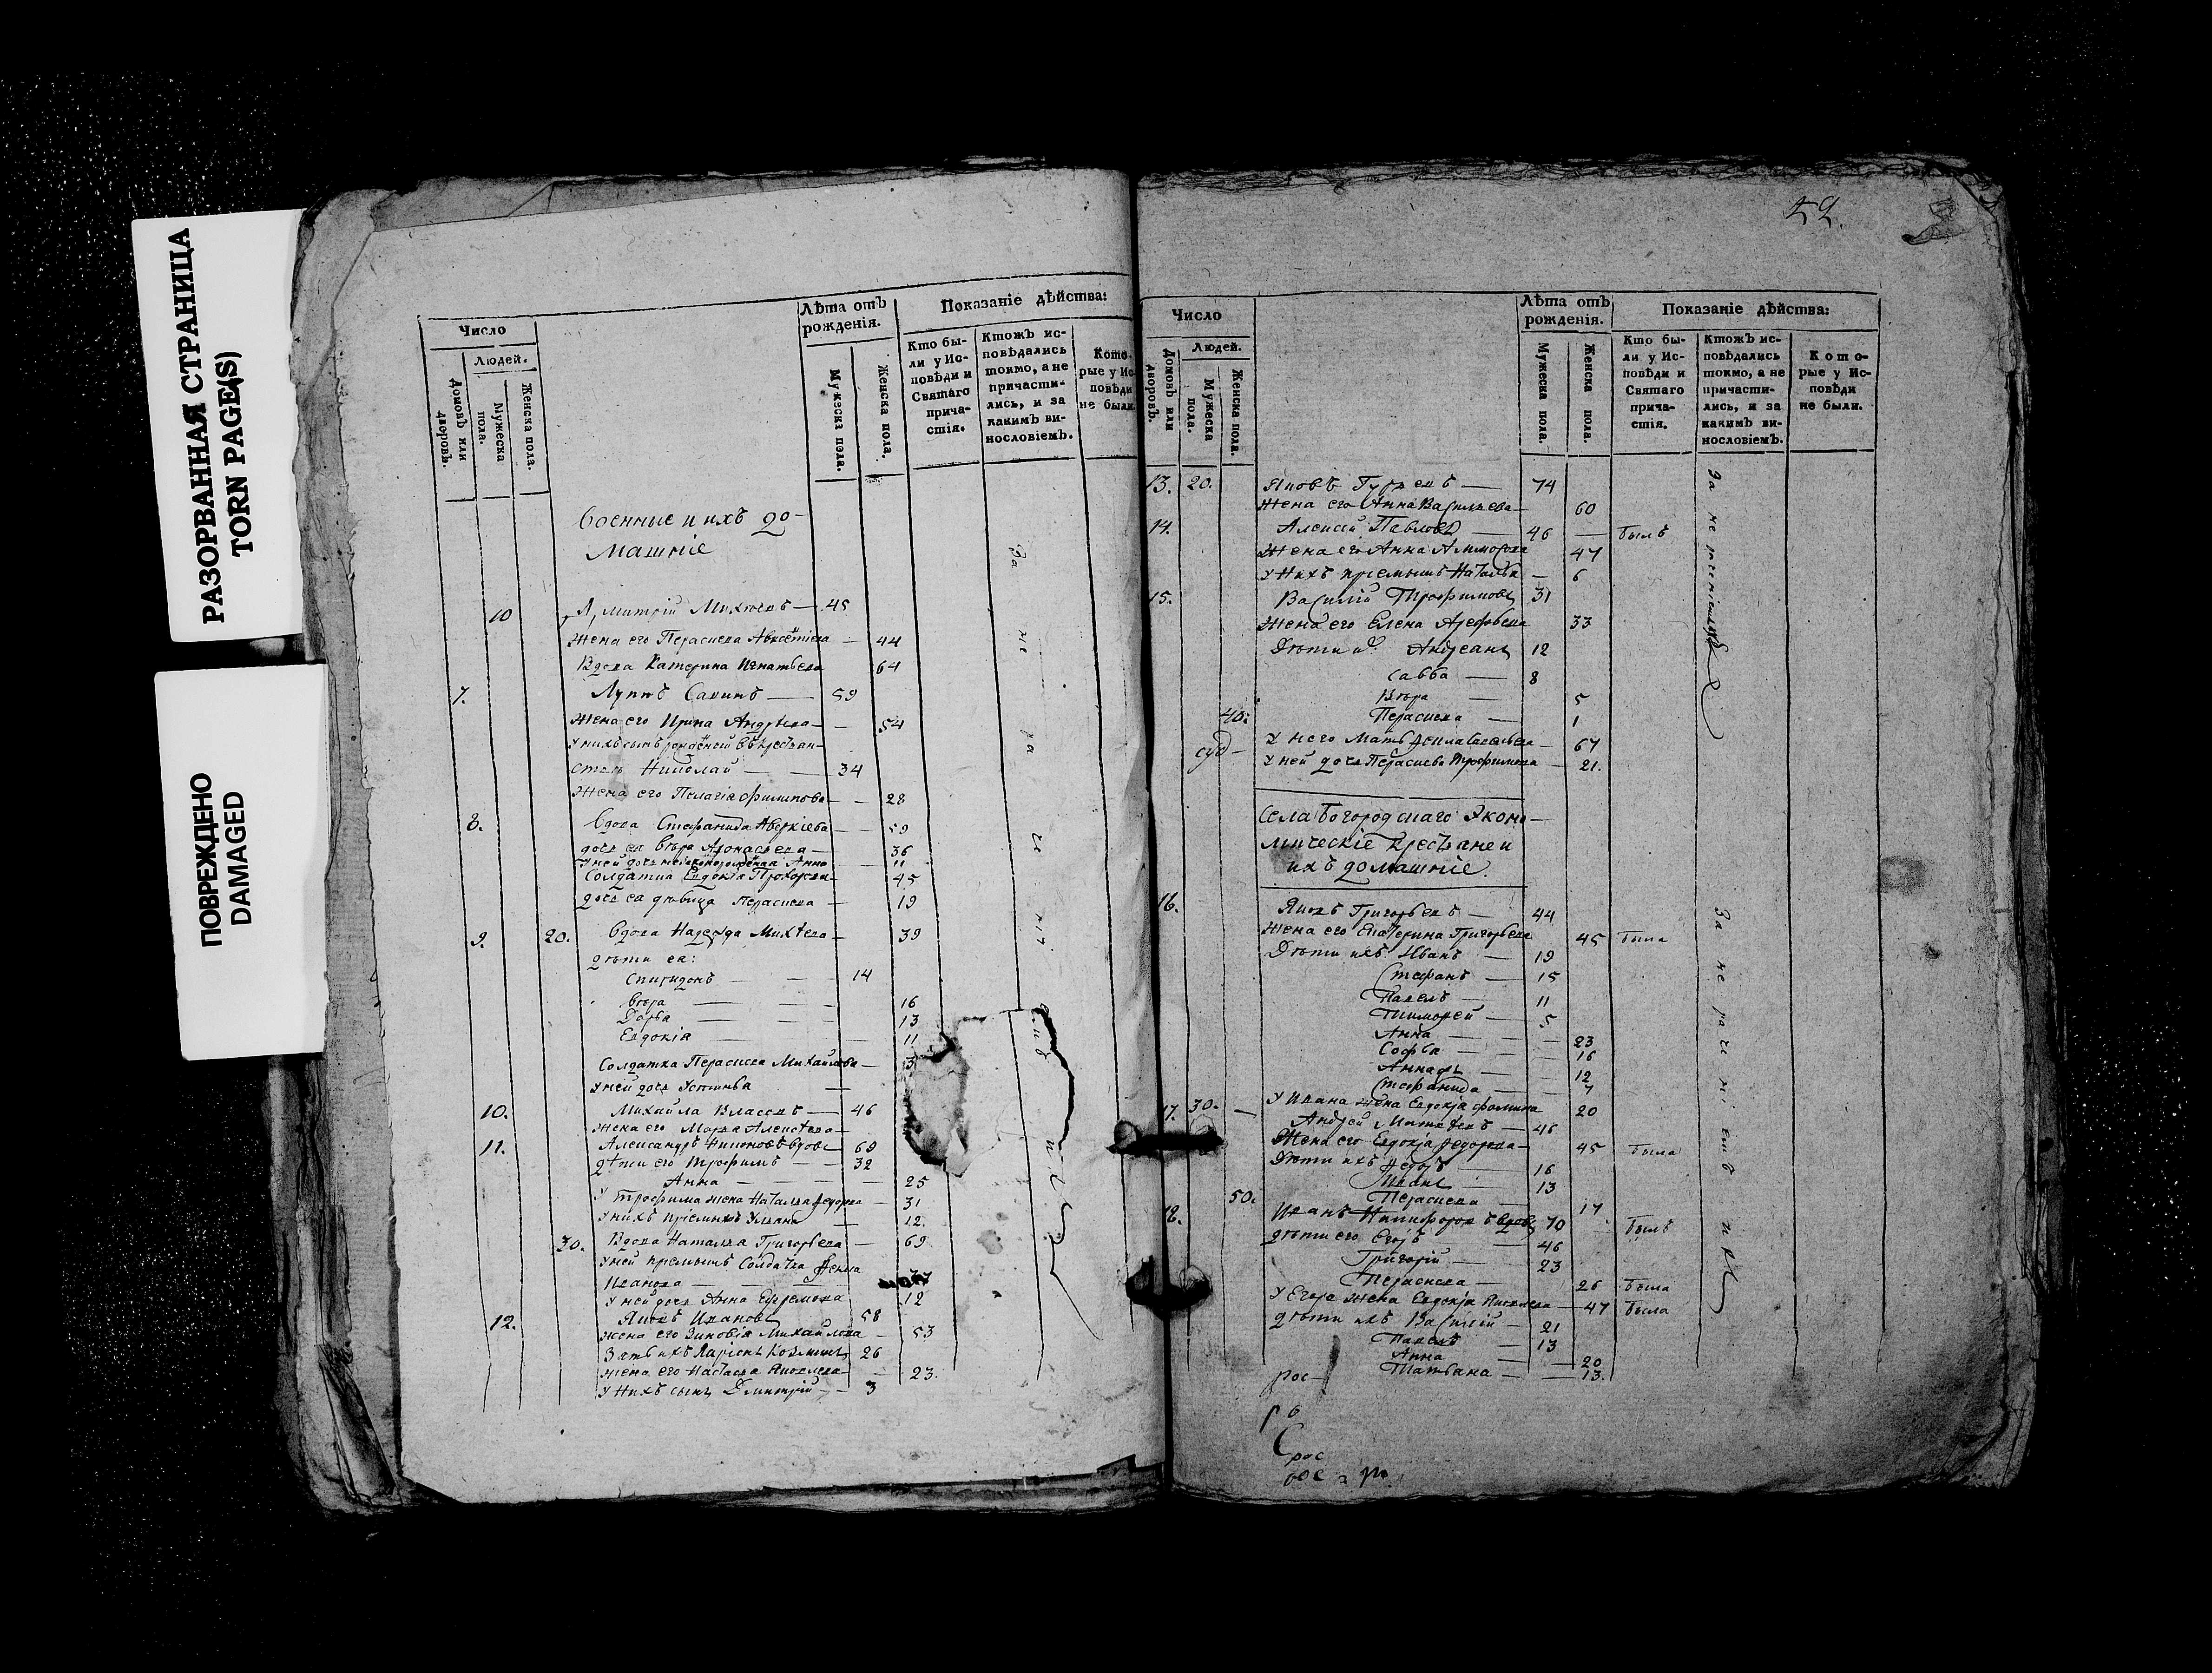 РАЗОРВАННАЯ СТРАНИЦА
TORN PAGE(S)
ПОВРЕЖДЕНО
DAMAGED
Число
Людей.
Домовъ или дворовъ.
Мужеска пола.
Женска пола.
Лѣта отъ рожденія.
Мужеска пола.
Женска пола.
Показаніе дѣйства:
Кто бы-
ли у Ис-
повѣди и
Святаго
прича-
стія.
Ктожъ ис-
повѣдались
токмо, а не
причасти-
лись, и за
какимъ ви-
нословіемъ.
Кото-
рые у Ис-
повѣди
не были.
Военные и ихъ до-
машніе
10 Дмитрій Михѣевъ — 45
Жена его Параскева — 44
Вдова Катерина Игнатьева 64
7. Луппъ Савинъ — 59
Жена его Ирина Андрѣева — 54
Николай — 34
Жена его Пелагія Филипова — 28
8. Вдова Стефанида Аверкіева — 59
дочь ея Вѣра Афонасьева — 36
Анна 11
Солдатка Евдокія Прохорова — 45
дочь ея дѣвица Параскева — 19
9. 20. Вдова Надежда Михѣева — 39
дѣти ея:
Спиридонъ — 14
Вѣра — 16
Дарья — 13
Евдокія — 11
Солдатка Параскева Михайлова —
У ней дочь Устинья —
10. Михайла Власовъ — 46
Жена его Марѳа Алексѣева —
11. Александръ Никоновъ вдовъ 69
дѣти его Трофимъ — 32
Анна — 25
У Трофима жена Наталья Федорова — 31
У нихъ пріемышъ Ульяна 12.
30. Вдова Наталья Григорьева — 69
У ней пріемышъ Солдатка Фекла
Иванова —
У ней дочь Анна Ефремова 12
12. Яковъ Ивановъ 58
Жена его Зиновія Михайлова — 53
Зять ихъ Ларіонъ Козминъ 26
Жена его Настасья Яковлева — 23.
У нихъ сынъ Дмитрій — 3
За не раченіемъ
42.
Число
Людей.
Домовъ или дворовъ.
Мужеска пола.
Женска пола.
Лѣта отъ рожденія.
Мужеска пола.
Женска пола.
Показаніе дѣйства:
Кто бы-
ли у Ис-
повѣди и
Святаго
прича-
стія.
Ктожъ ис-
повѣдались
токмо, а не
причасти-
лись, и за
какимъ ви-
нословіемъ.
Кото-
рые у Ис-
повѣди
не были.
13. 20. Яковъ Гурьевъ — 74
Жена его Анна Васильева — 60
14. Алексій Павловъ — 46 — былъ
Жена его Анна 47
У нихъ пріемышъ Наталья — 6
15. Василій Трофимовъ 31
Жена его Елена 33
Дѣти ихъ Андреянъ 12
Савва — 8
Вѣра — 5
40. Параскева — 1
У него мать Фекла Савельева — 67
У ней дочь Параскева Трофимова — 21.
За не раченіемъ
Села Богородскаго Эконо-
мическіе крестьяне и
ихъ домашніе.
16. Яковъ Григорьевъ — 44
Жена его Екатерина Григорьева 45 была
Дѣти ихъ: Иванъ — 19
Стефанъ — 15
Павелъ — 11
Тимофей — 5.
Анна — 23
Софья — 16
12
Стефанида — 7
30. У Ивана жена Евдокія Фомина 20
17. Андрей Матвѣевъ — 46
Жена его Евдокія Федорова — 45 была
Дѣти ихъ Федоръ 16
Иванъ 13
50. Параскева — 17
18. Иванъ Никифоровъ вдовъ 70 былъ
дѣти его Егоръ — 46
Григорій — 23
Параскева — 26 была
У Егора жена Евдокія Яковлева — 47 была
дѣти ихъ Василій — 21
Павелъ — 13
Анна — 20
Татьяна — 13.
За не раченіемъ
рос